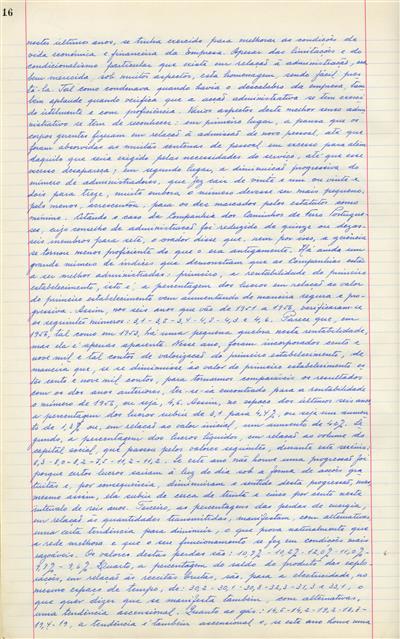 16
nestes últimos anos, se tenha exercido para melhorar as condições de
vida económica e financeira da Empresa. Apesar das limitações e do
condicionalismo particular que existe em relação à administração, era
bem merecida, sob muitos aspectos, esta homenagem, sendo fácil pres-
tá-la. Tal como condenava quando havia o descalabro da empresa, tam-
bém aplaude quando verifica que a acção administrativa se tem exerci-
do utilmente e com proficiência. Vários aspectos deste melhor senso admi-
nistrativo se tem de reconhecer: em primeiro lugar, a pausa que os
corpos gerentes fizeram em relação à admissão de novo pessoal, até que
foram absorvidas as muitas centenas de pessoal em excesso para além
daquilo que seria exigido pelas necessidades do serviço, até que esse
excesso desapareça; em segundo lugar, a diminuição progressiva do
número de administradores, que fez cair de vinte e um ou vinte e
dois para treze, muito embora o número devesse ser mais pequeno,
pelo menos, acrescentou, para os dez marcados pelos estatutos como
mínimo. Citando o caso da Companhia dos Caminhos de Ferro Portugue-
ses, cujo conselho de administração foi reduzido de quinze ou dezas-
seis membros para sete, o orador disse que, nem por isso, a gerência
se tornou menos proficiente do que o era antigamente. Há ainda um
grande número de índices que demonstram que as Companhias estão
a ser melhor administradas: primeiro, a rentabilidade do primeiro
estabelecimento, isto é, a percentagem dos lucros em relação ao valor
do primeiro estabelecimento vem aumentando de maneira segura e pro-
gressiva. Assim, nos seis anos que vão de 1951 a 1956, verificaram-se
os seguintes números:
1956, tal como em 1953, há uma pequena quebra nesta rentabilidade,
mas ela é apenas aparente. Nesse ano, foram incorporados cento e
nove mil e tal contos de valorização do primeiro estabelecimento, de
maneira que, se se diminuísse ao valor do primeiro estabelecimento os
tais cento e nove mil contos, para tornarmos comparáveis os resultados
com os dos anos anteriores, ter-se-ia encontrado para a rentabilidade
o número de 1957, ou seja, 4,6. Assim, no espaço dos últimos seis anos
a percentagem dos lucros subiu de 3,1 para 4,4%, ou seja um aumen-
to de 1,3% ou, em relação ao valor inicial, um aumento de 40%. Se-
gundo, a percentagem dos lucros líquidos, em relação ao volume do
capital social, que passou pelos valores seguintes, durante este sexénio:
Se este ano não houve uma progressão foi
porque estes lucros vieram à luz do dia sob a forma de acções gra-
tuitas e, por consequência, diminuíram o sentido desta progressão, mas
mesmo assim, ela subiu de cerca de trinta e cinco por cento neste
intervalo de seis anos. Terceiro, as percentagens das perdas de energia,
em relação às quantidades transmitidas, manifestam, com alternativas
uma certa tendência para diminuir, o que prova naturalmente que
a rede melhora e que o seu funcionamento se fez em condições mais
razoáveis. Os valores destas perdas são:
Quarto, a percentagem do saldo do produto das explo-
rações, em relação às receitas brutas, são, para a electricidade, no
mesmo espaço de tempo, de:
quer dizer que se manifesta também, com alternativas,
uma tendência ascensional. Quanto ao gás:
a tendência é também ascensional e, se este ano houve uma